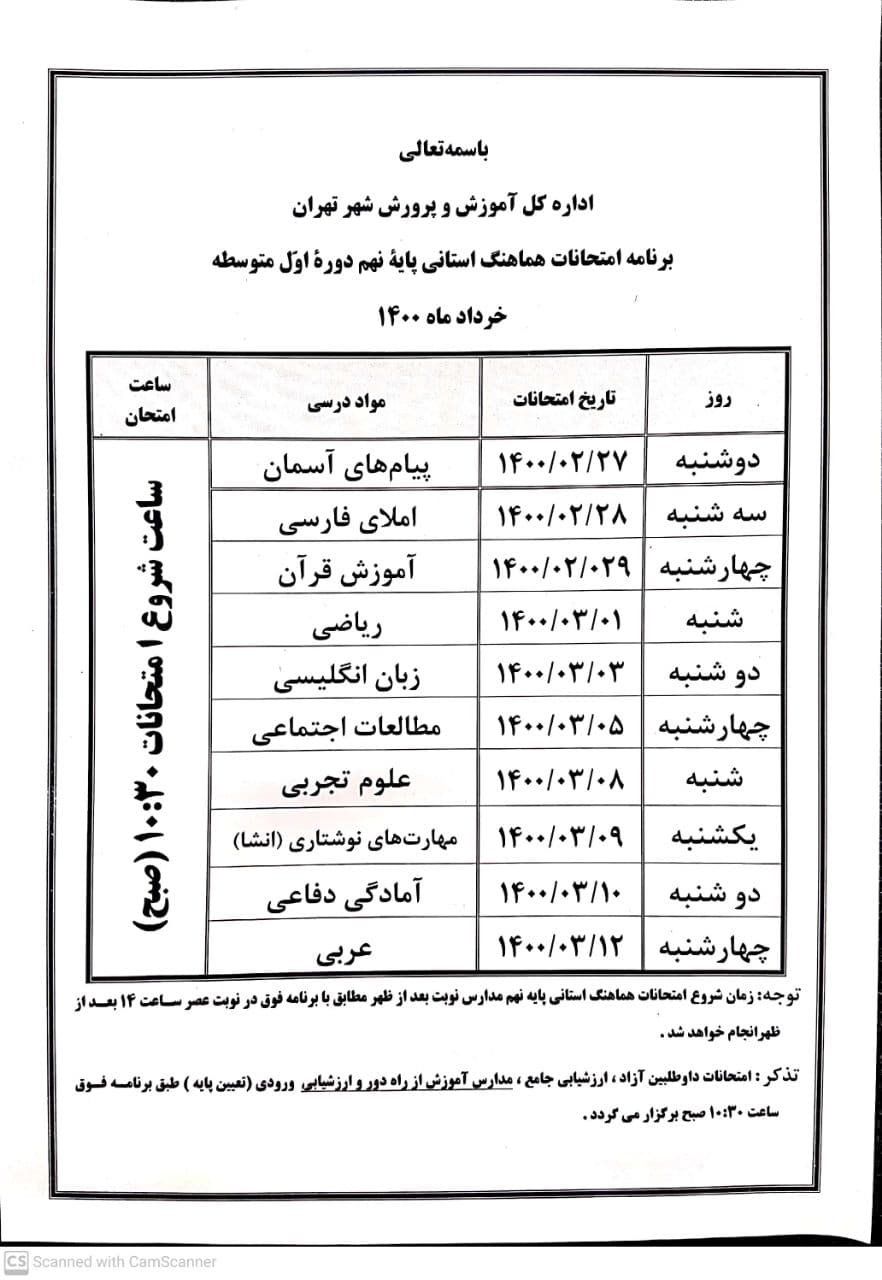 باسمه‌تعالی
اداره کل آموزش و پرورش شهر تهران
برنامه امتحانات هماهنگ استانی پایهٔ نهم دورهٔ اوّل متوسطه
خرداد ماه ۱۴۰۰
روز تاریخ امتحانات مواد درسی ساعت امتحان
دوشنبه ۱۴۰۰/۰۲/۲۷ پیام‌های آسمان
سه شنبه ۱۴۰۰/۰۲/۲۸ املای فارسی
چهارشنبه ۱۴۰۰/۰۲/۰۲۹ آموزش قرآن
شنبه ۱۴۰۰/۰۳/۰۱ ریاضی
دو شنبه ۱۴۰۰/۰۳/۰۳ زبان انگلیسی
چهارشنبه ۱۴۰۰/۰۳/۰۵ مطالعات اجتماعی
شنبه ۱۴۰۰/۰۳/۰۸ علوم تجربی
یکشنبه ۱۴۰۰/۰۳/۰۹ مهارت‌های نوشتاری (انشا)
دو شنبه ۱۴۰۰/۰۳/۱۰ آمادگی دفاعی
چهارشنبه ۱۴۰۰/۰۳/۱۲ عربی
ساعت شروع امتحانات ۱۰:۳۰ (صبح)
توجه: زمان شروع امتحانات هماهنگ استانی پایه نهم مدارس نوبت بعد از ظهر مطابق با برنامه فوق در نوبت عصر ساعت ۱۴ بعد از
ظهرانجام خواهد شد .
تذکر : امتحانات داوطلبین آزاد ، ارزشیابی جامع ، مدارس آموزش از راه دور و ارزشیابی ورودی (تعیین پایه ) طبق برنامه فوق
ساعت ۱۰:۳۰ صبح برگزار می گردد .
CS Scanned with CamScanner